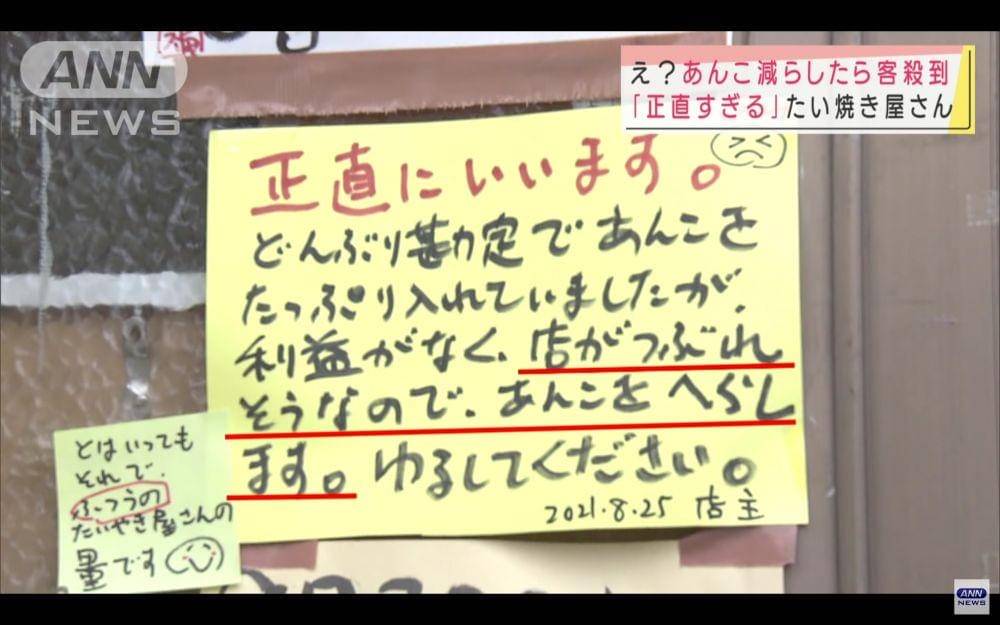 ANN
NEWS
え？あんこ減らしたら客殺到
「正直すぎる」たい焼き屋さん
正直にいいます。
どんぶり勘定であんこを
たっぷり入れていましたが、
利益がなく、店がつぶれ
そうなので、あんこをへらし
ます。ゆるしてください。
2021.8.25 店主
とはいっても
それで、
ふつうの
たいやき屋さんの
量です
ANN
NEWS